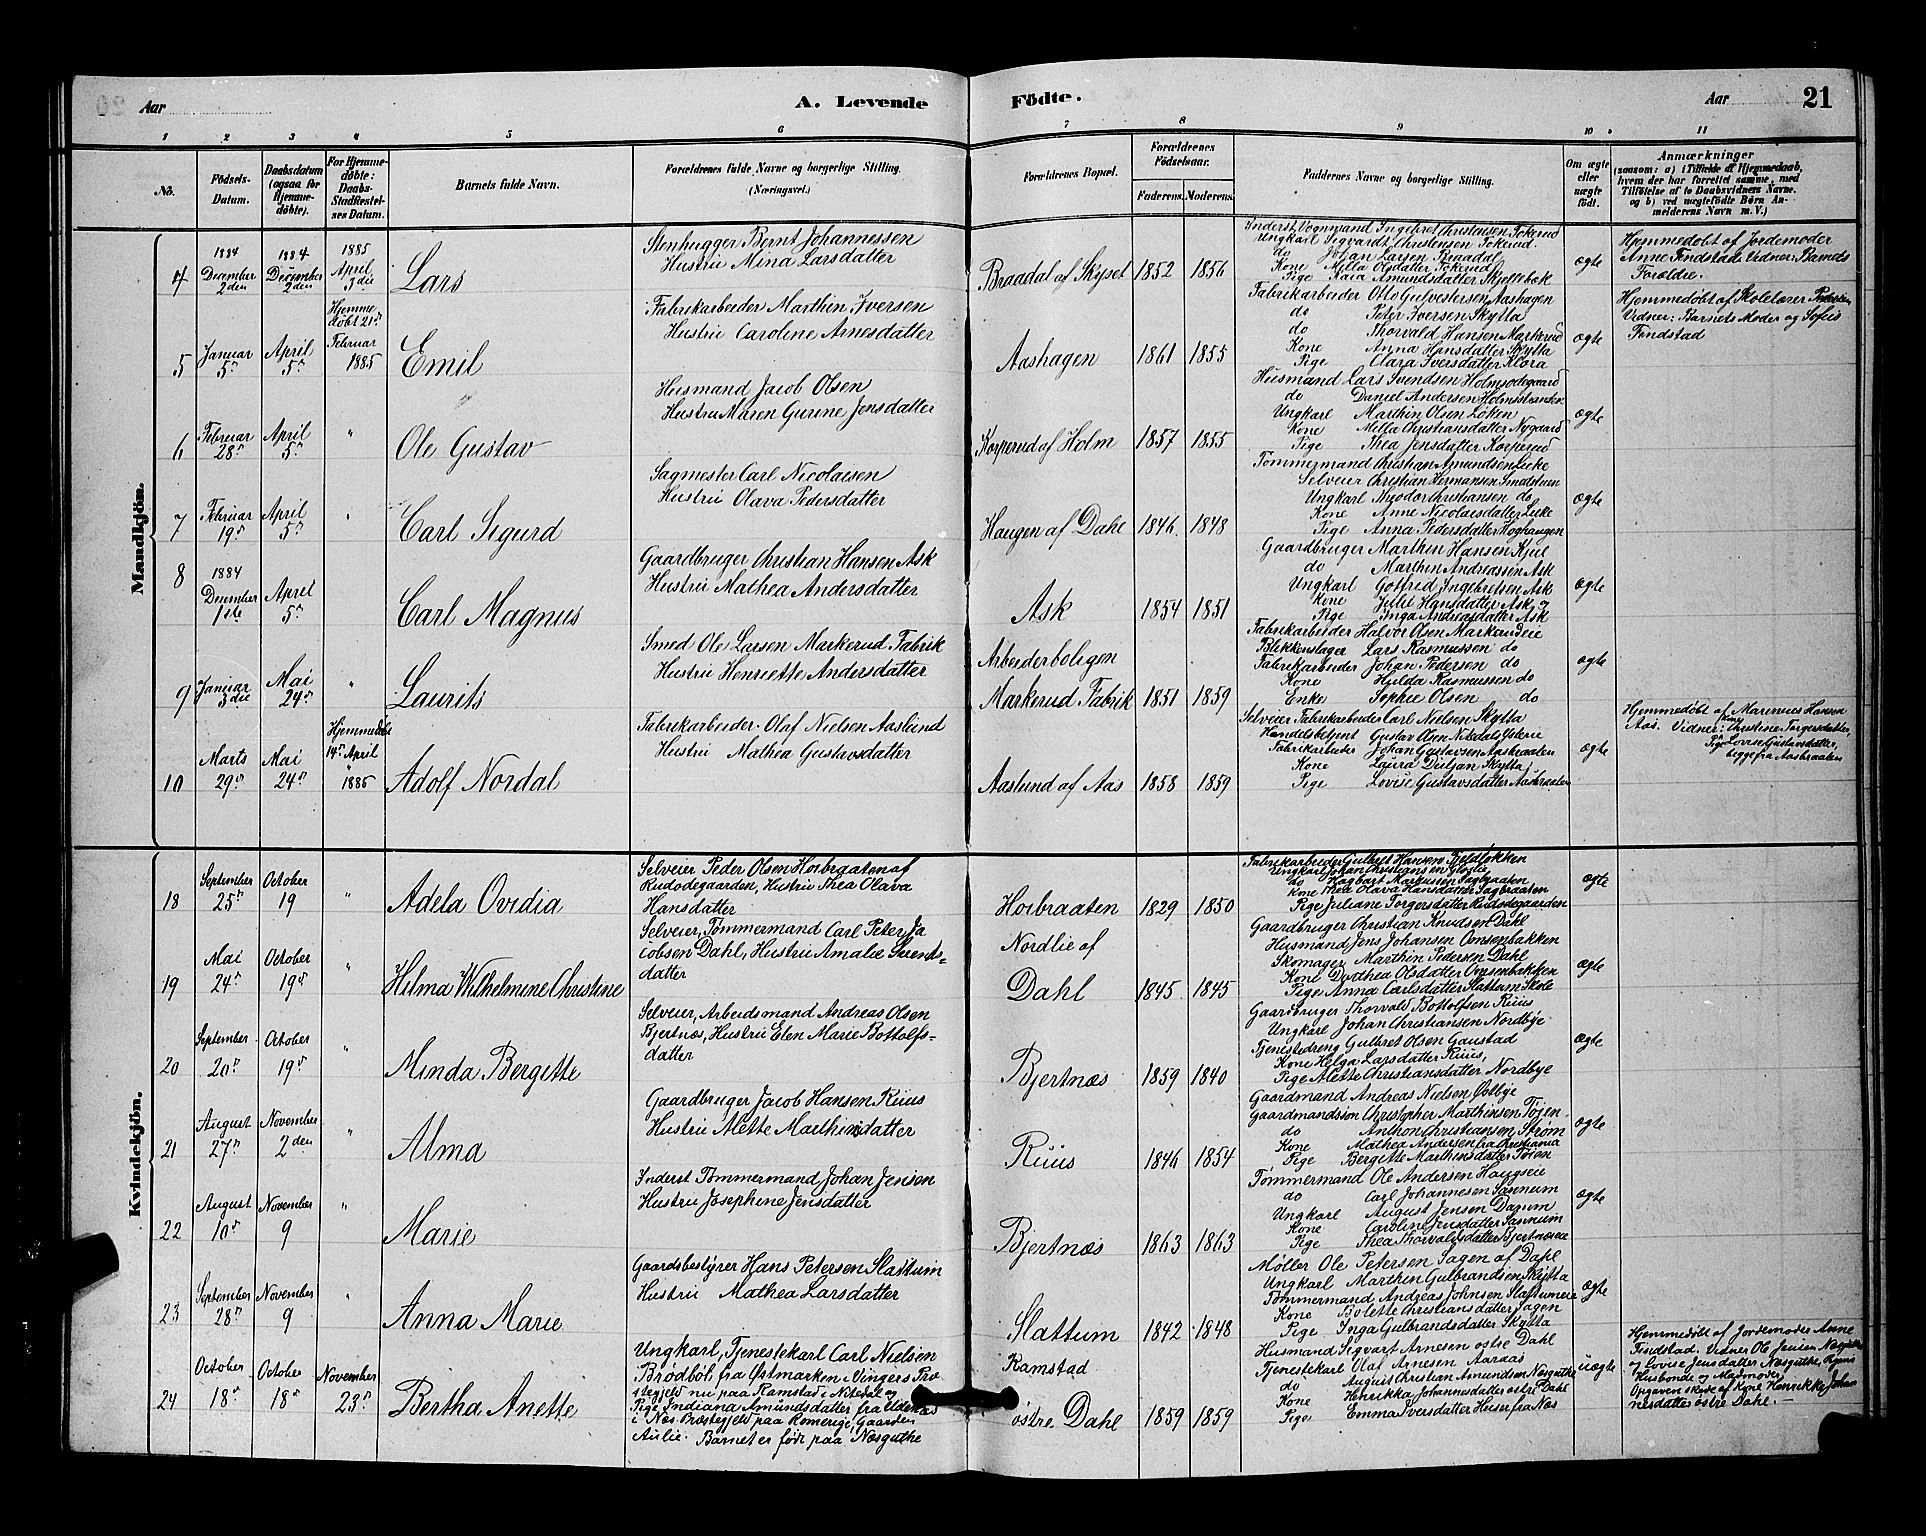 Aar
A. Levende
Födte.
Aar
21
1 2 3 4 5 6 7 8 9 10 11
No.
Födsels-Datum.
Daabsdatum (ogsaa for Hjemmedöbte).
For Hjemmedöbte: Daabs-Stadfæstelses Datum.
Barnets fulde Navn.
Forældrenes fulde Navne og borgerlige Stilling.
(Næringsvei.)
Forældrenes Bopæl.
Forældrenes Födselsaar.
Faderens. Moderens.
Faddernes Navne og borgerlige Stilling.
Om ægte eller uægte födt.
Anmærkninger
(saasom: a) i Tilfælde af Hjemmedaab, hvem der har forrettet samme, med Tilföielse af to Daabsvidners Navne. og b) ved uægtefödte Börn Anmelderens Navn m. V.)
Mandkjön.
4
1884 December 2den
1884 December 2den
1885 April 3die
Lars
Stenhugger Bernt Johannessen
Hustru Mina Larsdatter
Braadal af Skyset
1852 1856
Inderst Vognmand Ingebret Christensen Tokerud
Ungkarl Sigvardt Christensen Tokerud.
do Johan Larsen Braadal
Kone Milla Olsdatter Tokerud
Pige Kaia Amundsdatter Skjellebæk
ægte
Hjemmedøbt af Jordemoder
Anne Findstad. Vidner: Barnets
Forældre.
5
Januar 5n
April 5n
Hjemmedøbt 21n Februar 1885
Emil
Fabrikarbeider Marthin Iversen
Hustru Caroline Arnesdatter
Aashagen
1861 1855
Fabrikarbeider Otto Gulvestersen Aashagen
do Peter Iversen Skytta
do Thorvald Hansen Markerud
Kone Anna Hansdatter Skytta
Pige Clara Iversdatter Klora
ægte
Hjemmedøbt af Skolelærer
Vidner: Barnets Moder og Sofie
Findstad
6
Februar 28n
April 5n
"
Ole Gustav
Husmand Jacob Olsen
Hustru Maren Gurine Jensdatter
Korperud af Holm
1857 1855
Husmand Lars Svendsen Holmsødegaard
do Daniel Andersen Holmsstranden
Ungkarl Marthin Olsen Løken
Kone Milla Christiansdatter Nygaard
Pige Thea Jensdatter Korperud
ægte
7
Februar 19n
April 5n
"
Carl Sigurd
Sagmester Carl Nicolaisen
Hustru Olava Pedersdatter
Haugen af Dahl
1846 1848
Tømmermand Christian Amundsen Lieke
Selveier Christian Hermansen
Ungkarl Theodor Christiansen do
Kone Anne Nicolaisdatter Lieke
Pige Anna Pedersdatter Hoghaugen
ægte
8
1884 December 1ste
April 5n
Carl Magnus
Gaardbruger Christian Hansen Ask
Hustru Mathea Andersdatter
Ask
1854 1851
Gaardbruger Marthin Hansen Kjul
do Marthin Andreassen Ask
Ungkarl Gotfred Ingebretsen Ask
Kone Julie Hansdatter Ask og
Pige Inga Andreasdatter Ask
ægte
9
Januar 3die
Mai 24n
"
Laurits
Smed Ole Larsen Markerud Fabrik
Hustru Henriette Andersdatter
Arbeiderboligen
Markerud Fabrik
1851 1859
Fabrikarbeider Halvor Olsen Markerudeie
Blikkenslager Lars Rasmussen do
Fabrikarbeider Johan Pedersen do
Kone Hulda Rasmussen do
Enke Sophie Olsen do
ægte
10
Marts 29n
Mai 24n
Hjemmedøbt 14n April 1885
Adolf Nordal
Fabrikarbeider Olaf Nielsen Aaslund
Hustru Mathea Gustavsdatter
Aaslund af Aas
1858 1859
Selveier Fabrikarbeider Carl Nielsen Skytta
Handelsbetjent Gustav Olsen Nitedals
Fabrikarbeider Johan Gustavsen Aasbraaten
Kone Laura Skytta
Pige Lovise Gustavsdatter Aasbraaten
ægte
Hjemmedøbt af Marinues Hansen
Aas. Vidner: Kone Christine Torgersdatter,
Pige Lovise Gustavsdatter,
begge fra Aasbraaten
Kvindekjön.
18
September 25n
October 19
"
Adela Ovidia
Selveier Peder Olsen Hoibraaten af
Rudødegaarden, Hustru Thea Olava
Hansdatter
Hoibraaten
1829 1850
Fabrikarbeider Gulbret Hansen Fjeldløkken
Ungkarl Johan Christiansen
do Hagbart Markussen Sagbraaten
Kone Thea Olava Hansdatter Sagbraaten
Pige Juliane Torgersdatter Rudsødegaarden
ægte
19
Mai 24n
October 19n
"
Hilma Wilhelmine Christine
Selveier, Tømmermand Carl Peter Ja
cobsen Dahl, Hustru Amalie Svends=
datter
Nordlie af
Dahl
1845 1845
Gaardbruger Christian Knudsen Dahl
Husmand Jens Johansen Ornsenbakken
Skomager Marthin Pedersen Dahl
Kone Dorthea Olsdatter Ornsenbakken
Pige Anna Carlsdatter Slattum Skole
ægte
20
September 20n
October 19n
"
Minda Bergitte
Selveier, Arbeidsmand Andreas Olsen
Bjertnæs, Hustru Elen Marie Bottolfs-
datter
Bjertnæs
1859 1840
Gaardbruger Thorvald Bottolfsen Ruus
Ungkarl Johan Christiansen Nordbye
Tjenestedreng Gulbret Olsen Gaustad
Kone Helga Larsdatter Ruus,
Pige Alette Christiansdatter Nordbye
ægte
21
August 27n
November 2den
"
Alma
Gaardbruger Jacob Hansen Ruus
Hustru Alette Marthinsdatter
Ruus
1846 1854
Gaardmand Andreas Nielsen Østbye
Gaardmandssøn Christopher Marthinsen Tøien
do Anthon Christiansen Strøm
Kone Mathea Andersen fra Christiania
Pige Bergitte Marthinsdatter Tøien
ægte
22
August 10n
November 9
"
Marie
Inderst Tømmermand Johan Jensen
Hustru Josephine Jensdatter
Bjertnæs
1863 1863
Tømmermand Ole Andersen Haugseie
do Carl Johannesen Sannum
Ungkarl August Jensen Danum
Kone Caroline Jensdatter Sannum
Pige Thea Thorvalsdatter Bjertnæseie
ægte
23
September 28n
November 9
"
Anna Marie
Gaardsbestyrer Hans Petersen Slattum
Hustru Mathea Larsdatter
Slattum
1842 1848
Møller Ole Petersen Sagen af Dahl
Ungkarl Marthin Gulbrandsen Skytta
Tømmermand Andreas Johnsen Slattumeie
Kone Bolette Christiansdatter Sagen
Pige Inga Gulbrandsdatter Skytta
ægte
24
October 18n
October 18n
November 23n
Bertha Anette
Ungkarl, Tjenestekarl Carl Nielsen
Brødbøl fra Østmarken i Vingers Præ
stegjeld nu paa Ramstad i Nitedal og
Pige Indiana Amundsdatter fra
i Nes Præstegjeld paa Romerige, Gaarden
Aulie. Barnet er født paa Næsguthe
Ramstad
østre Dahl
1859 1859
Husmand Sigvart Arnesen østre Dahl
Tjenestekarl Olaf Arnesen Aaraas
do August Christian Amundsen Næsguthe
Kone Henrikka Johannesdatter østre Dahl
Pige Emma Iversdatter Huser fra Næs
uægte
Hjemmedøbt af Jordemoder Anne
Findstad. Vidner Ole Jensen Næsguthe
og Lovise Jensdatter Næsguthe,
Husbonde og Madmoder
Opgaven skede af Kone Henrikke Johan
nesdatter østre Dahl.